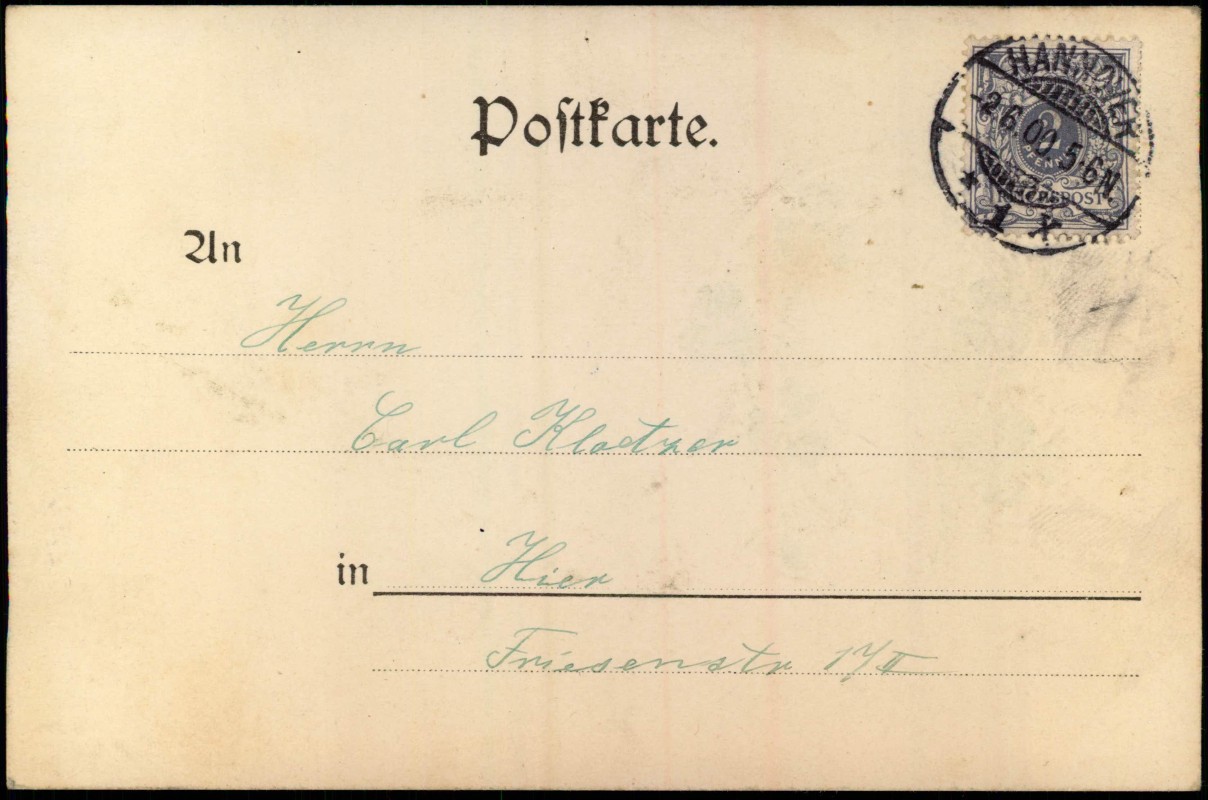 Postkarte.
HANNOVER
-2.6.00 5-6N
* 1 x
2
PFENNIG
REICHSPOST
An
Herrn
Carl Klotzer
in Hier
Friesenstr 17/II